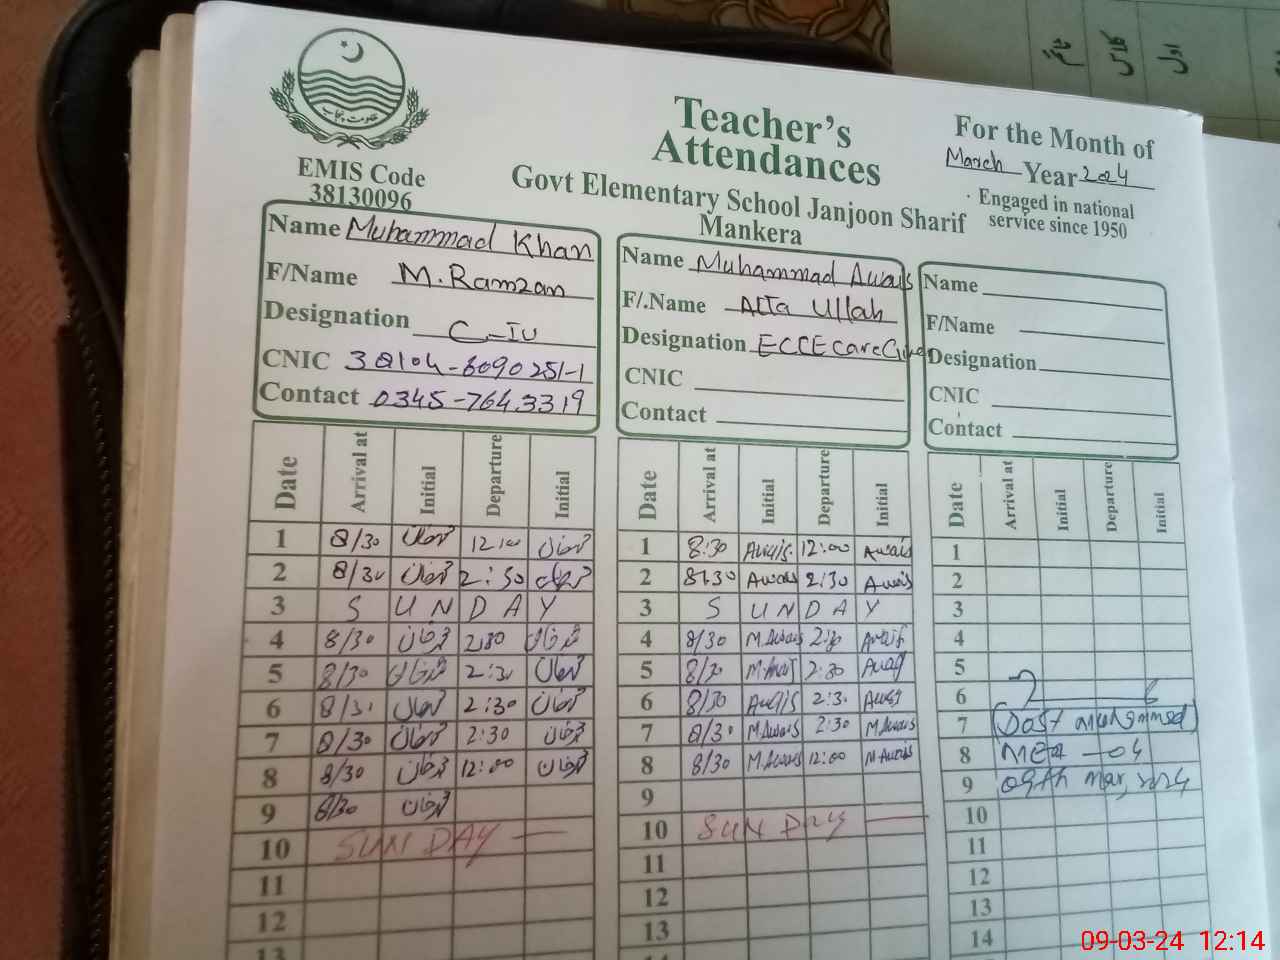 تاریخ
کلاس
اول
حکومت پنجاب
Teacher's
Attendances
EMIS Code
38130096
Govt Elementary School Janjoon Sharif
Mankera
For the Month of
March Year 2024
Engaged in national
service since 1950
Name Muhammad Khan
F/Name M.Ramzan
Designation C-IV
CNIC 38104-8090251-1
Contact 0345-7643319
Date Arrival at Initial Departure Initial
1 8/30 12:00
2 8/30 2:30
3 SUNDAY
4 8/30 2:30
5 8/30 2:30
6 8/30 2:30
7 8/30 2:30
8 8/30 12:00
9 8/30
10 SUNDAY
11
12
13
Name Muhammad Awais
F/.Name Atta Ullah
Designation ECCE care Giver
CNIC
Contact
Date Arrival at Initial Departure Initial
1 8:30 Awais 12:00 Awais
2 8:30 Awais 2:30 Awais
3 SUNDAY
4 8/30 M.Awais 2:30 Awais
5 8/30 M.Awais 2:30 Awais
6 8/30 Awais 2:30 Awais
7 8/30 M.Awais 2:30 M.Awais
8 8/30 M.Awais 12:00 M.Awais
9
10 SUNDAY
11
12
13
14
Name
F/Name
Designation
CNIC
Contact
Date Arrival at Initial Departure Initial
1
2
3
4
5
6
7 Dost muhammad
8 MEA-04
9 09th Mar, 2024
10
11
12
13
14
09-03-24 12:14